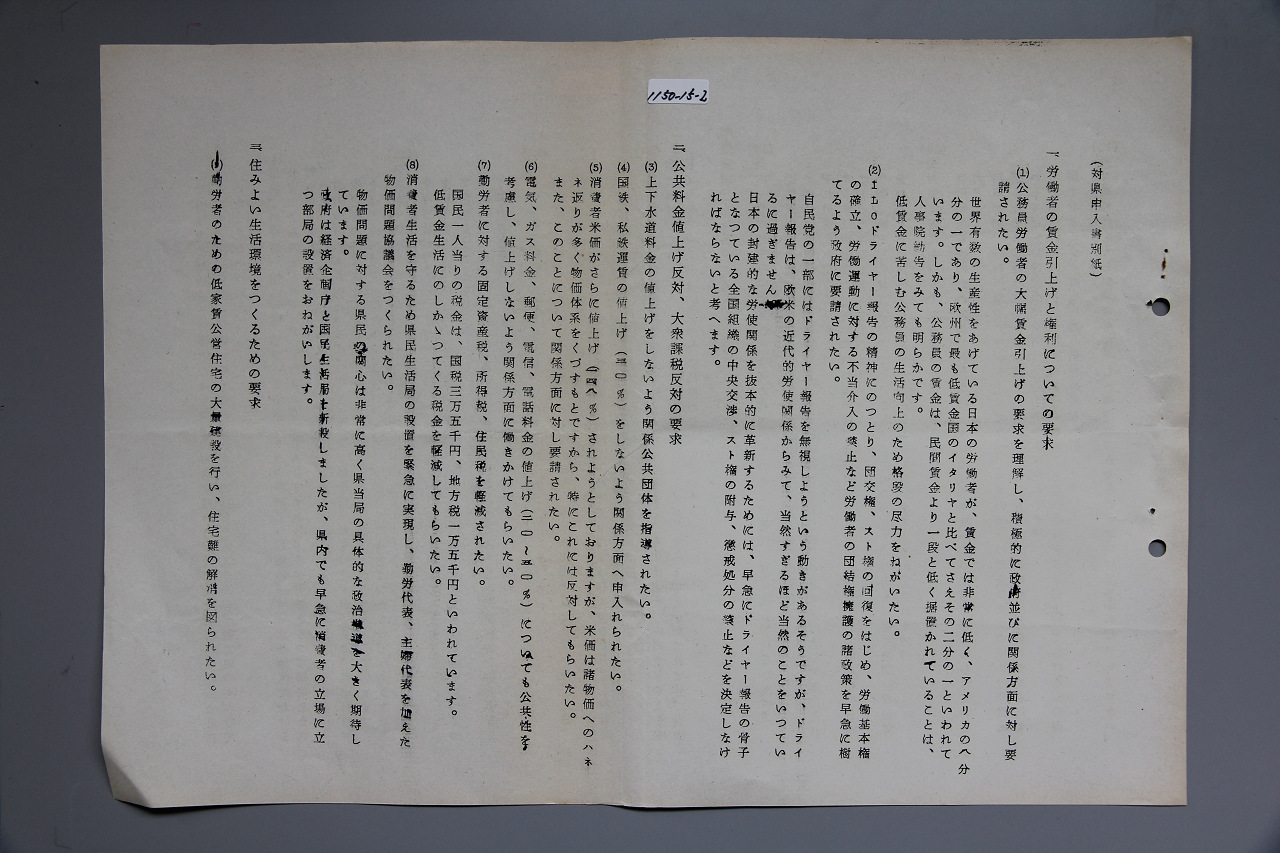 1150-15-2
(対県申入書別紙)
一、労働者の賃金引上げと権利についての要求
(1) 公務員労働者の大幅賃金引上げの要求を理解し、積極的に政府並びに関係方面に対し要
請されたい。
世界有数の生産性をあげている日本の労働者が、賃金では非常に低く、アメリカの八分
の一であり、欧州で最も低賃金国のイタリヤと比べてさえその二分の一といわれて
います。しかも、公務員の賃金は、民間賃金より一段と低く据置かれていることは、
人事院勧告をみても明らかです。
低賃金に苦しむ公務員の生活向上のため格段の尽力をねがいたい。
(2) ILOドライヤー報告の精神にのつとり、団交権、スト権の回復をはじめ、労働基本権
の確立、労働運動に対する不当介入の禁止など労働者の団結権擁護の諸政策を早急に樹
てるよう政府に要請されたい。
自民党の一部にはドライヤー報告を無視しようという動きがあるそうですが、ドライ
ヤー報告は、欧米の近代的労使関係からみて、当然すぎるほど当然のことをいつてい
るに過ぎません。
日本の封建的な労使関係を抜本的に革新するためには、早急にドライヤー報告の骨子
となつている全国組織の中央交渉、スト権の附与、懲戒処分の禁止などを決定しなけ
ればならないと考へます。
二、公共料金値上げ反対、大衆課税反対の要求
(3) 上下水道料金の値上げをしないよう関係公共団体を指導されたい。
(4) 国鉄、私鉄運賃の値上げ(三〇%)をしないよう関係方面へ申入れられたい。
(5) 消費者米価がさらに値上げ(一四八%)されようとしておりますが、米価は諸物価へのハネ
ネ返りが多く物価体系をくづすもとですから、特にこれには反対してもらいたい。
また、このことについて関係方面に対し要請されたい。
(6) 電気、ガス料金、郵便、電信、電話料金の値上げ(二〇〜五〇%)についても公共性を
考慮し、値上げしないよう関係方面に働きかけてもらいたい。
(7) 勤労者に対する固定資産税、所得税、住民税を軽減されたい。
国民一人当りの税金は、国税三万五千円、地方税一万五千円といわれています。
低賃金生活にのしかゝつてくる税金を軽減してもらいたい。
(8) 消費者生活を守るため県民生活局の設置を緊急に実現し、勤労代表、主婦代表を加えた
物価問題協議会をつくられたい。
物価問題に対する県民の関心は非常に高く県当局の具体的な政治指導を大きく期待し
ています。
政府は経済企画庁と国民生活局を新設しましたが、県内でも早急に消費者の立場に立
つ部局の設置をおねがいします。
三、住みよい生活環境をつくるための要求
勤労者のための低家賃公営住宅の大量建設を行い、住宅難の解消を図られたい。